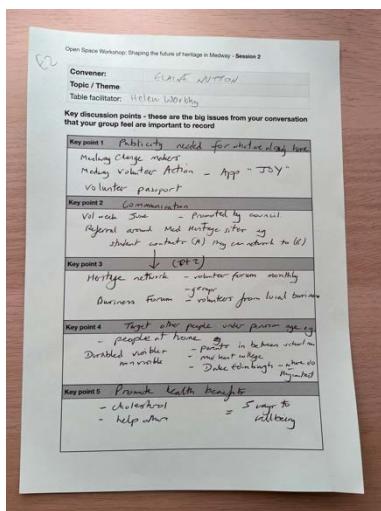 Open Space Workshop: Shaping the future of heritage in Medway - Session 2
Convener: ELAINE
Topic / Theme
Table facilitator: Helen Worthy
Key discussion points - these are the big issues from your conversation
that your group feel are important to record
Key point 1 Publicity needed for what we already have
Medway Change makers
Medway Volunteer Action - App "JOY"
Volunteer passport
Key point 2 Communication
Vol week June - Promoted by council
Referral around Med Heritage sites eg
student contacts (A) they can network to (B)
Key point 3 (pt 2)
Heritage network - volunteer forum monthly
- group
Business Forum - volunteers from local business
Key point 4 Target other people under pension age eg.
- people at home
- parents in between school run
Disabled visible
non visible
- mid Kent college
- Duke Edinburgh - where do
they contact
Key point 5 Promote health benefits
- cholesterol
- help others
= 5 ways to
wellbeing